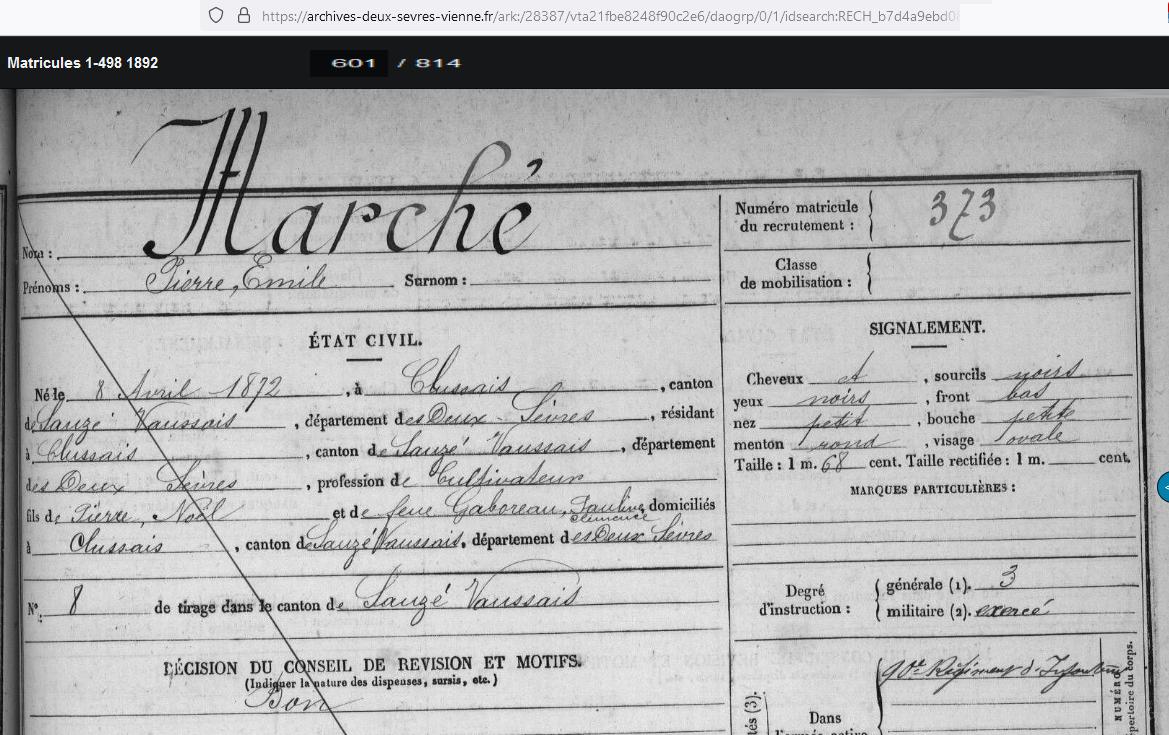 https://archives-deux-sevres-vienne.fr/ark:/28387/vta21fbe8248f90c2e6/daogrp/0/1/idsearch:RECH_b7d4a9ebd0
Matricules 1-498 1892
601 / 814
Marché
Nom :
Prénoms : Pierre, Emile Surnom :
Numéro matricule du recrutement : 373
Classe de mobilisation :
ÉTAT CIVIL.
Né le 8 Avril 1872, à Clussais, canton
de Sauzé Vaussais, département des Deux-Sèvres, résidant
à Clussais, canton de Sauzé Vaussais, département
des Deux Sèvres, profession de Cultivateur
fils de Pierre, Noël et de feue Gaboreau, Pauline, Clémence domiciliés
à Clussais, canton de Sauzé Vaussais, département des Deux Sèvres
N° 8 de tirage dans le canton de Sauzé Vaussais
DÉCISION DU CONSEIL DE REVISION ET MOTIFS.
(Indiquer la nature des dispenses, sursis, etc.)
Bon
SIGNALEMENT.
Cheveux et, sourcils noirs
yeux noirs, front bas
nez petit, bouche petite
menton rond, visage ovale
Taille : 1 m. 68 cent. Taille rectifiée : 1 m. cent.
MARQUES PARTICULIÈRES :
Degré d'instruction :
générale (1). 3
militaire (2). exercé
90e Régiment d'Infanterie
Dans
l'armée active
NUMÉRO
répertoire du corps.